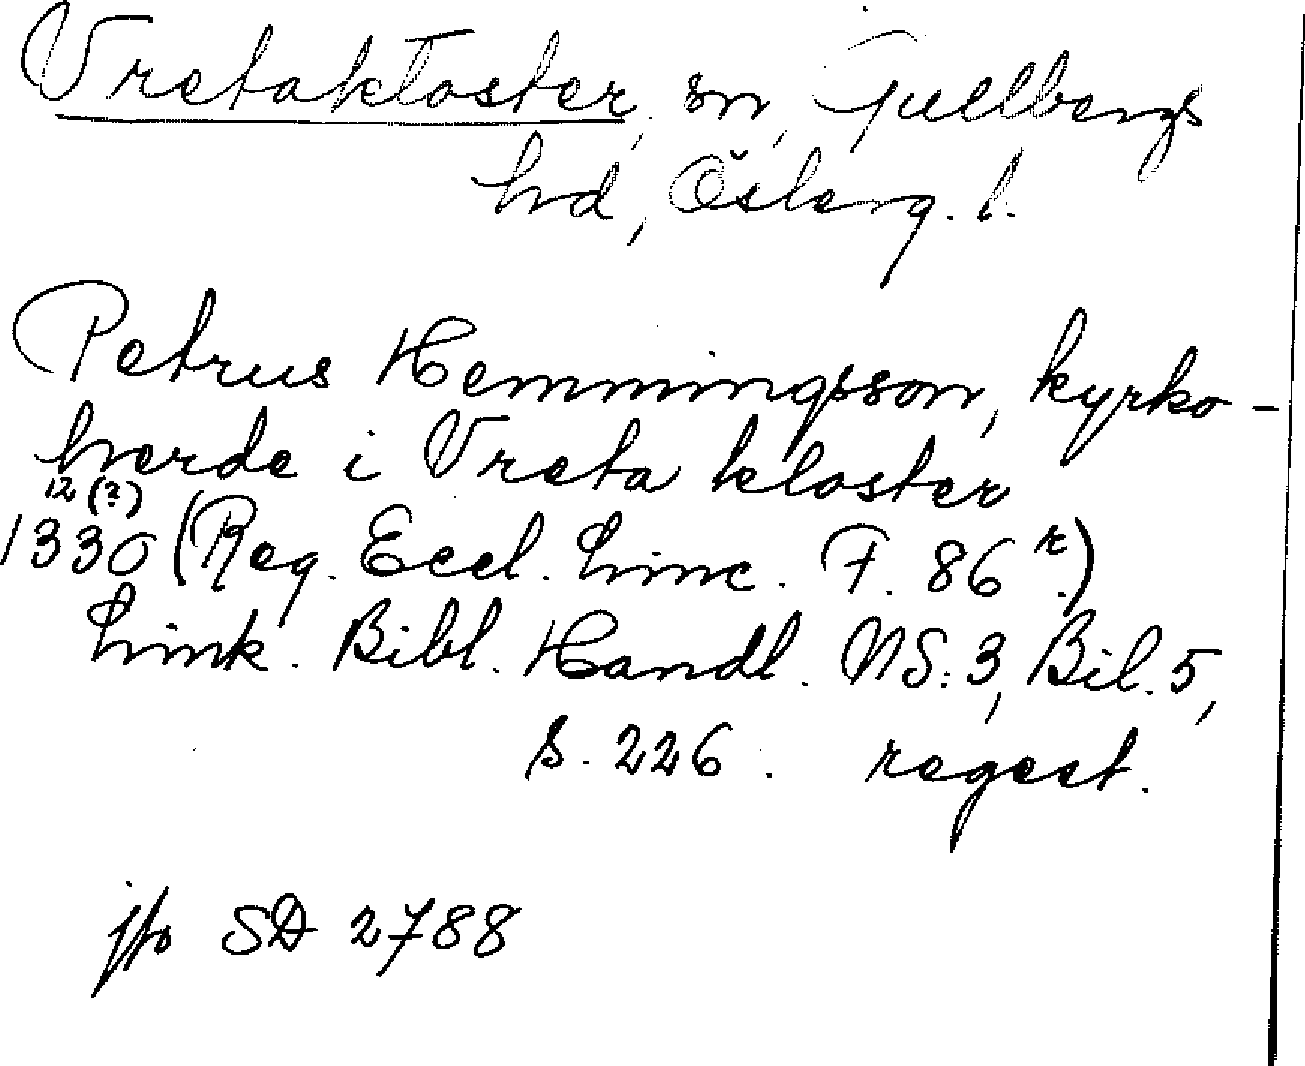 Vretakloster, sn, Gullbergs
hd, Österg. l.
Petrus Hemmingsson, kyrko-
herde i Vreta kloster
12 (?)
1330 (Reg. Eccl. Linc. F. 86 r.)
Link. Bibl. Handl. NS: 3, Bil. 5,
s. 226. regest.
jfr SD 2788